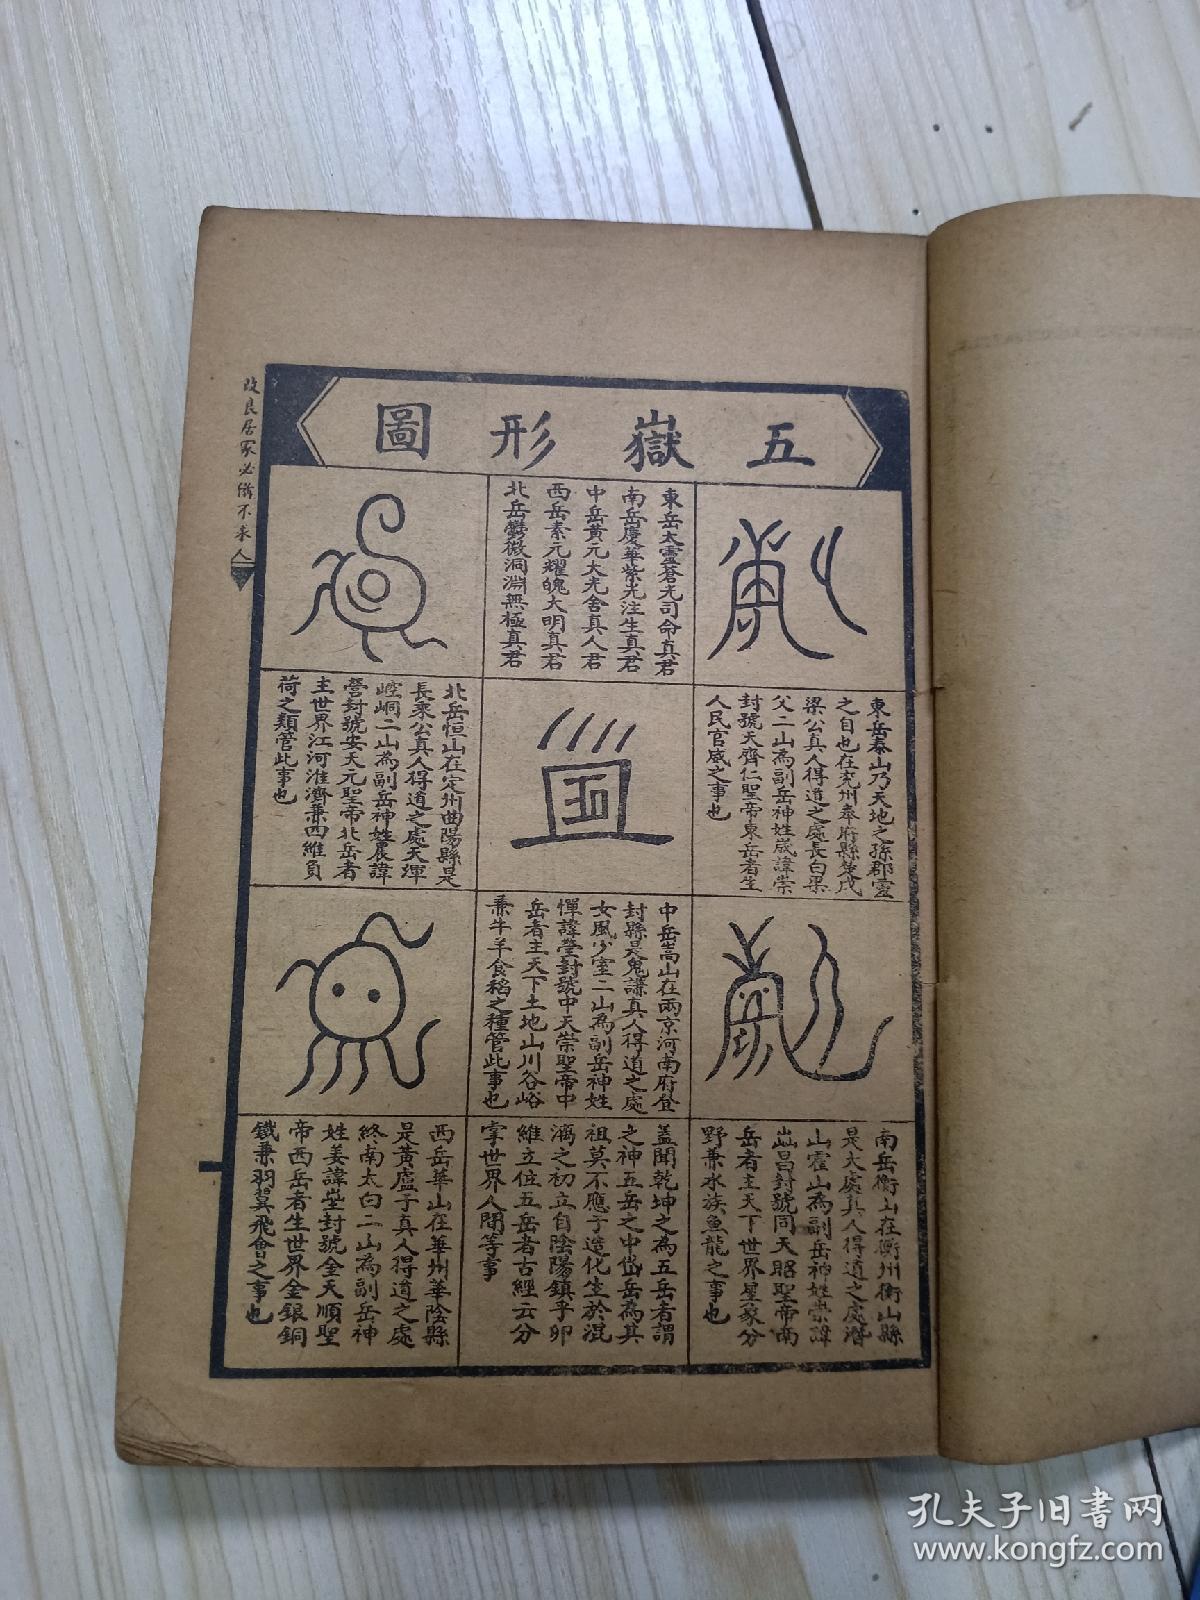 五嶽形圖
東岳太靈蒼光司命真君
南岳慶華紫光注生真君
中岳黃元大光含真人君
西岳素元耀魄大明真君
北岳鬱微洞淵無極真君
東岳泰山乃天地之孫郡靈
之自也在兖州奉府縣是成
梁公真人得道之處長白梁
父二山為副岳神姓歲諱崇
封號天齊仁聖帝東岳者生
人民官威之事也
北岳恒山在定州曲陽縣是
長乘公真人得道之處天渾
崆峒二山為副岳神姓晨諱
嵤封號安天元聖帝北岳者
主世界江河淮濟兼四維負
荷之類管此事也
中岳嵩山在兩京河南府登
封縣是鬼謙真人得道之處
女風少室二山為副岳神姓
惲諱瑩封號中天崇聖帝中
岳者主天下土地山川谷峪
兼牛羊食稻之種管此事也
南岳衡山在衡州衡山縣
是大處真人得道之處潛
山霍山為副岳神姓崇諱
𡶶昌封號同天昭聖帝南
岳者主天下世界星象分
野兼水族魚龍之事也
蓋聞乾坤之為五岳者謂
之神五岳之中岱岳為其
祖莫不應于造化生於混
漓之初立自陰陽鎮乎卯
維立位五岳者古經云分
掌世界人間等事
西岳華山在華州華陰縣
是黃盧子真人得道之處
終南太白二山為副岳神
姓姜諱埊封號金天順聖
帝西岳者生世界金銀銅
鐵兼羽翼飛會之事也
改良居家必備不求人
孔夫子旧书网
www.kongfz.com